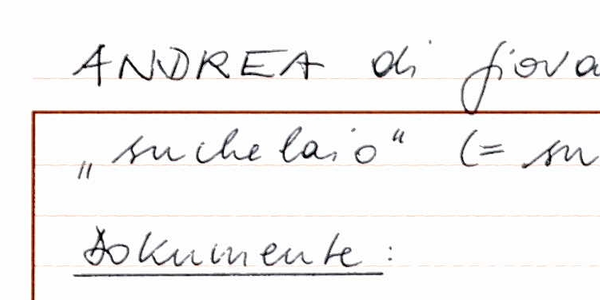 ANDREA di giova
„suchelaio“ (= su
Dokumente: